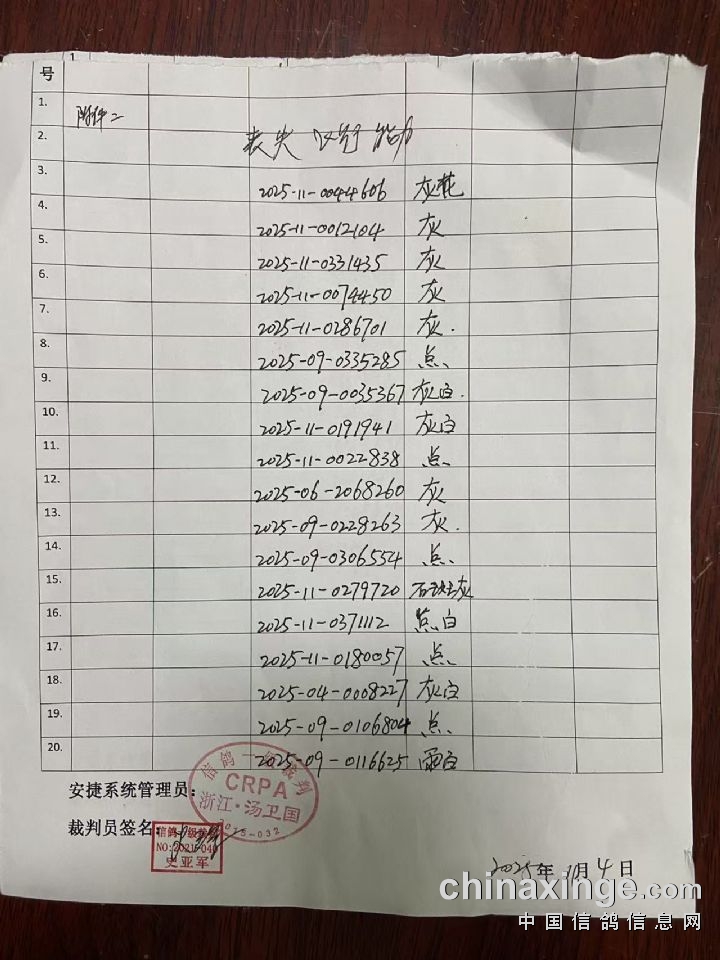 号
1.
附件二
2.
丧失飞行能力
3. 2025-11-0044606 灰花
4. 2025-11-0012104 灰
5. 2025-11-0331435 灰
6. 2025-11-0074450 灰
7. 2025-11-0286701 灰.
8. 2025-09-0335285 点
9. 2025-09-0035367 灰白.
10. 2025-11-0191941 灰白
11. 2025-11-0022838 点
12. 2025-06-2068260 灰
13. 2025-09-0228263 灰.
14. 2025-09-0306554 点
15. 2025-11-0279720 石斑灰
16. 2025-11-0371112 点白
17. 2025-11-0180057 点
18. 2025-04-0008227 灰白
19. 2025-09-0106804 点
20. 2025-09-0116625 雨白
安捷系统管理员:
信鸽一级裁判
CRPA
浙江·汤卫国
2025-032
裁判员签名:
信鸽一级裁判
NO:2021-040
史亚军
2025年11月4日
chinaxinge.com
中国信鸽信息网